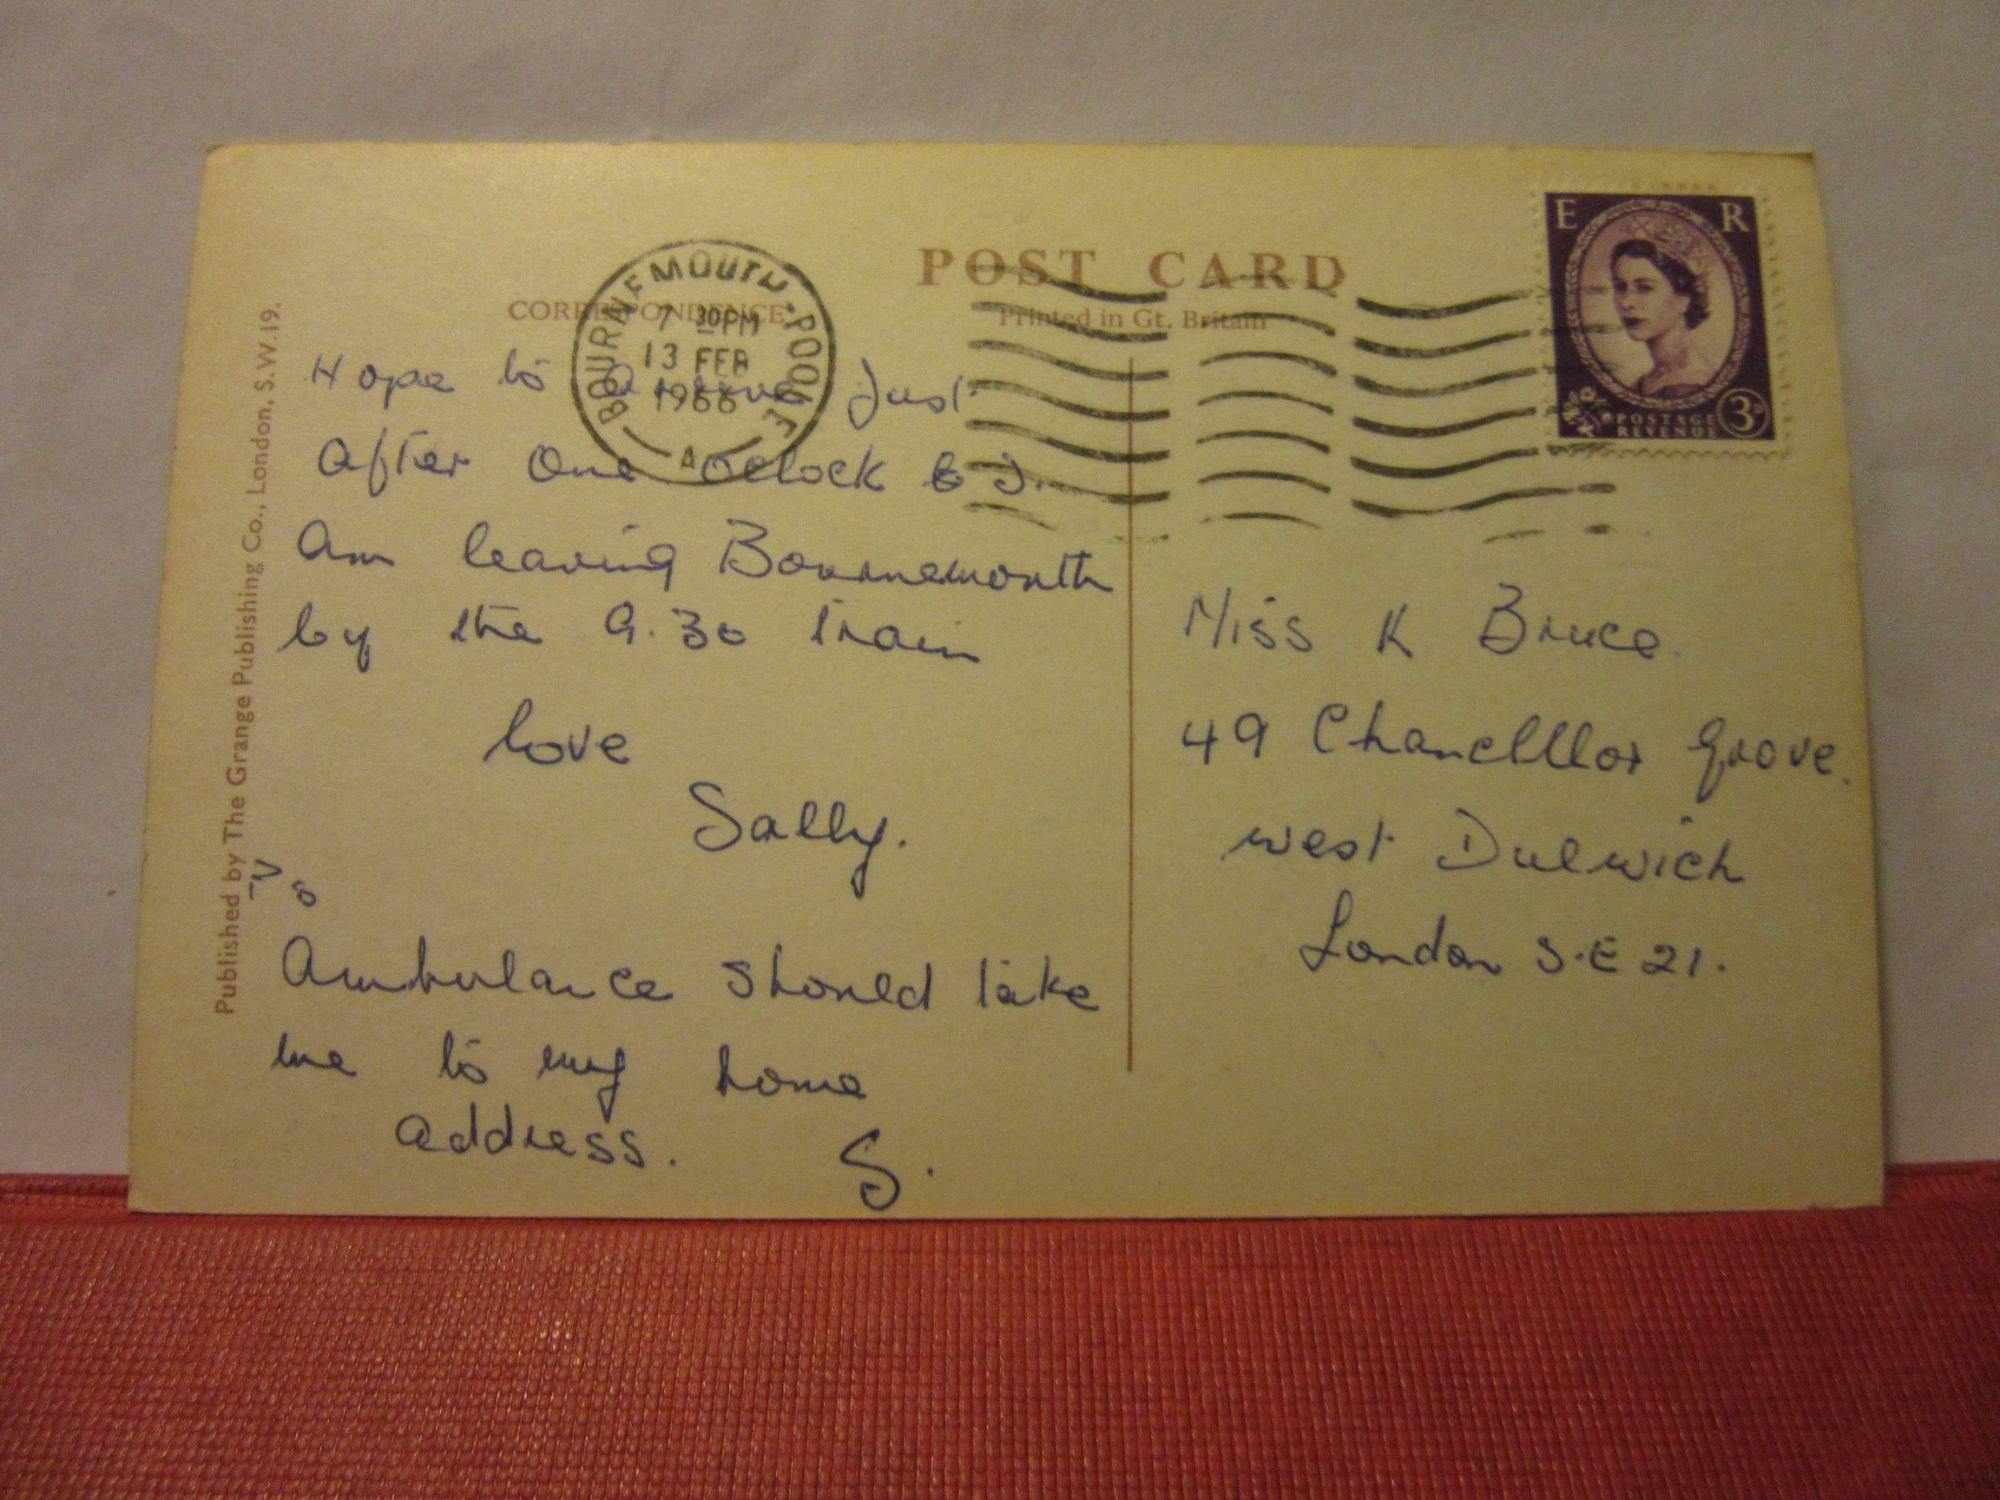 POST CARD
CORRESPONDENCE
Printed in Gt. Britain
BOURNEMOUTH · POOLE
7 30PM
13 FEB
1966
A
E R
POSTAGE
REVENUE
3D
Hope to arrive Just
After One oclock
Am leaving Bournemouth
by the 9.30 train
love
Sally.
Ambulance should take
me to my home
address. S.
Miss K Bruce
49 Chancelllor Grove.
West Dulwich
London S.E 21.
Published by The Grange Publishing Co., London, S.W.19.